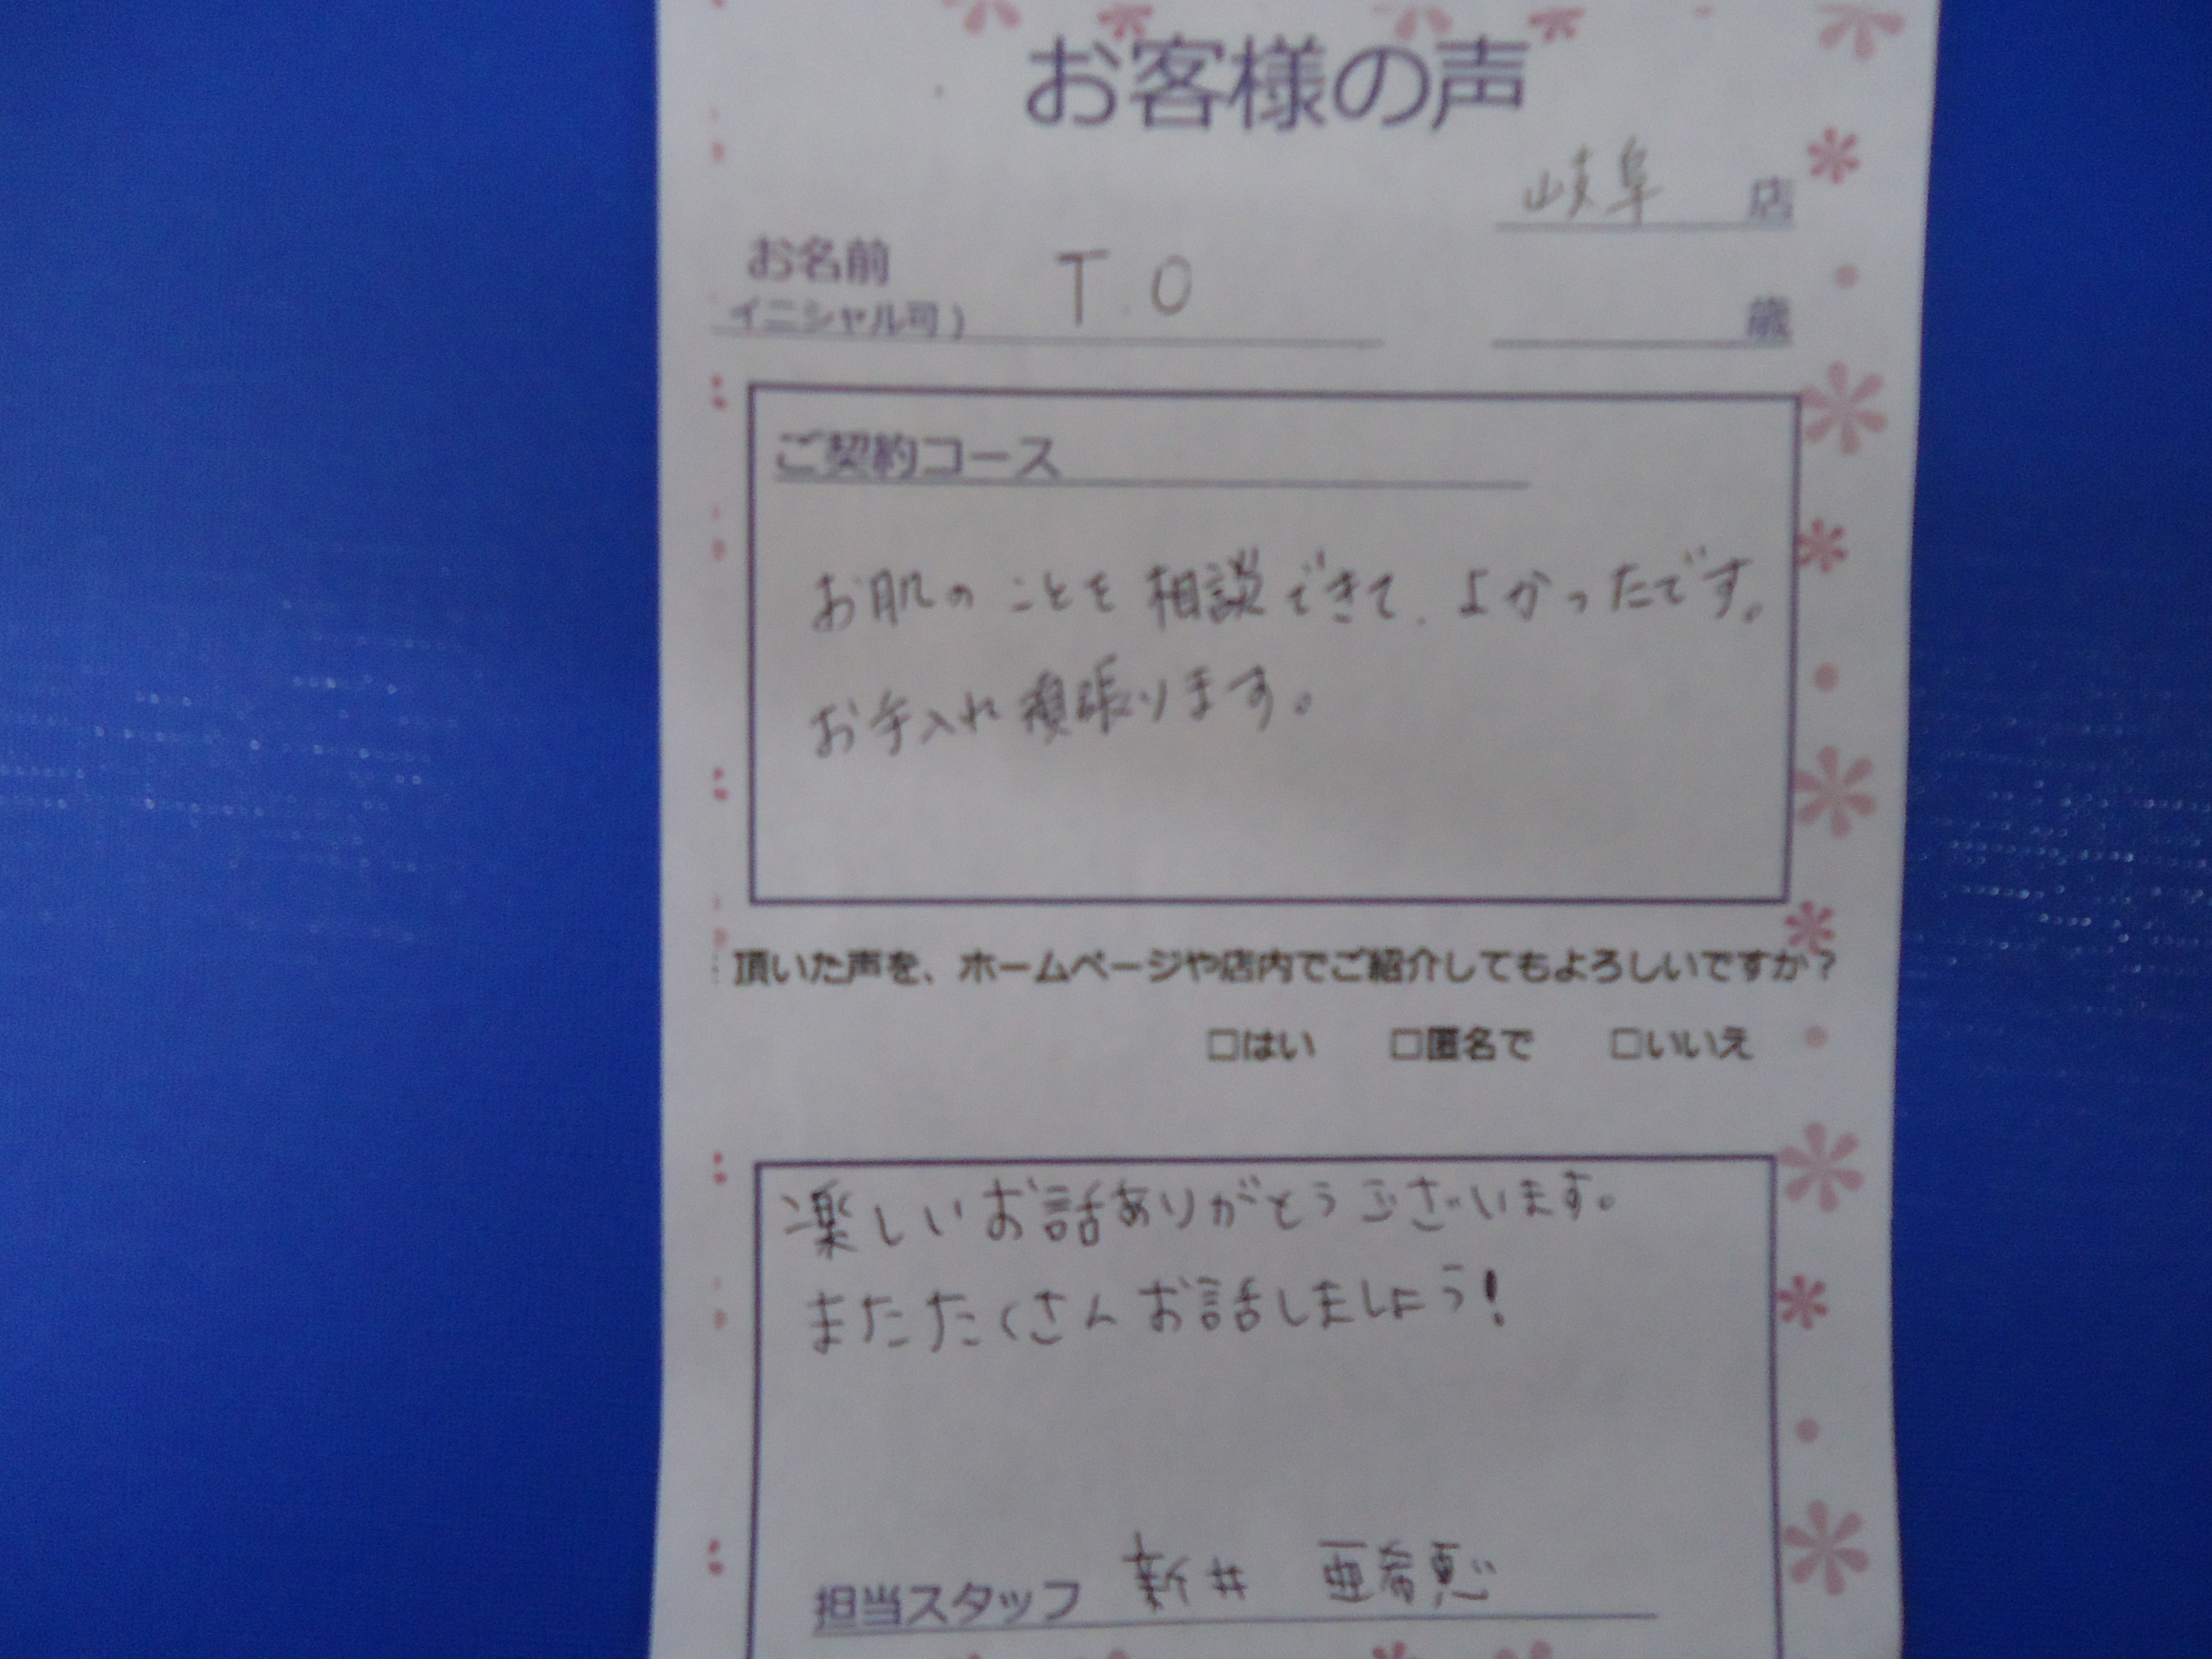 お客様の声
岐阜 店
お名前 T.O
イニシャル可) 歳
ご契約コース
お肌のことを相談できて、よかったです。
お手入れ頑張ります。
頂いた声を、ホームページや店内でご紹介してもよろしいですか?
□はい □匿名で □いいえ
楽しいお話ありがとうございます。
またたくさんお話しましょう!
担当スタッフ 新井 亜希恵